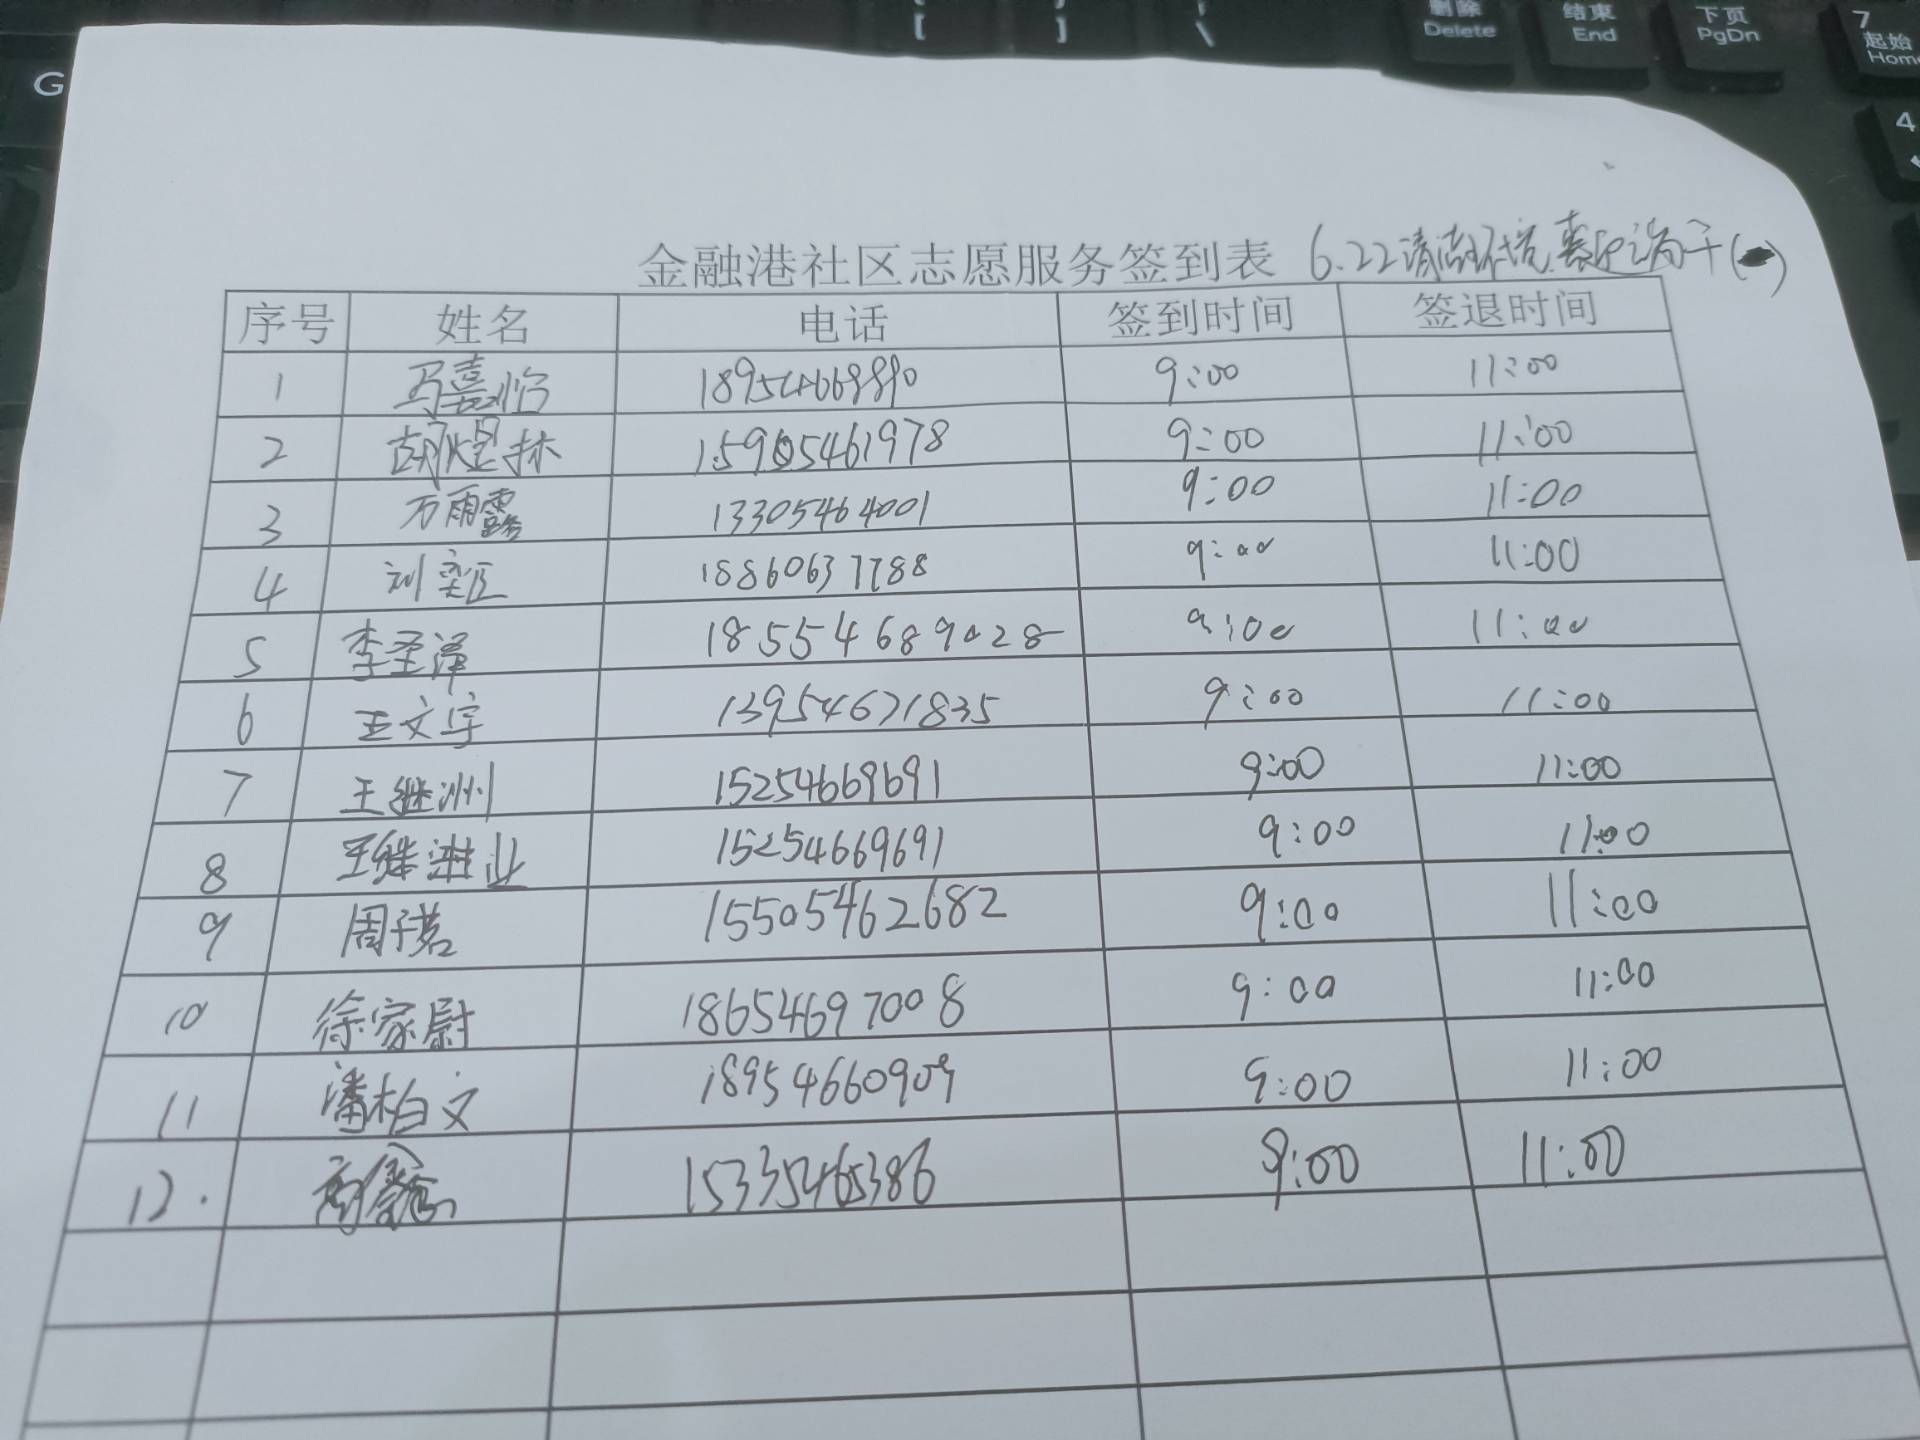 [ ] \ 删除 结束 下页 7
Delete End PgDn 起始
Home
G
4
金融港社区志愿服务签到表 6.22清洁环境
序号 姓名 电话 签到时间 签退时间
1 马嘉怡 18954668890 9:00 11:00
2 胡煜林 15905461978 9:00 11:00
3 万雨露 13305464001 9:00 11:00
4 刘奕匠 18860637788 9:00 11:00
5 李圣泽 18554689028 9:00 11:00
6 王文宇 13954671835 9:00 11:00
7 王继洲 15254669691 9:00 11:00
8 王继 业 15254669691 9:00 11:00
9 周子茗 15505462682 9:00 11:00
10 徐家尉 18654697008 9:00 11:00
11 潘柏文 18954660909 9:00 11:00
12. 15335465386 9:00 11:00